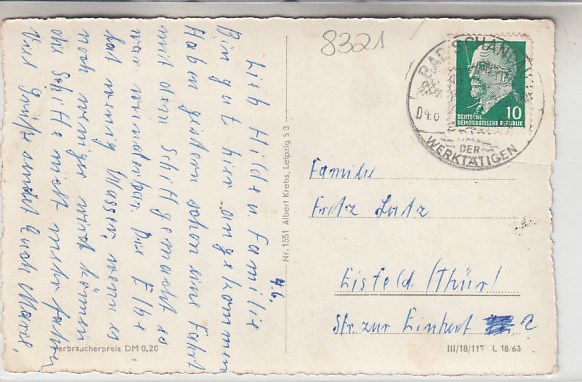 8321
4.6.
Lieb Hilde u. Familie
Bin gut hier angekommen
Habn gestern schon eine Fahrt
mit dem Schiff gemacht es
war wunderbar. Die Elbe
hat wenig Wasser, wenn es
noch weniger wird können
die Schiffe nicht mehr fahren
Viel Grüße sendet Euch
Verbraucherpreis DM 0,20
Nr. 1551 Albert Krebs, Leipzig S 3
BAD SCHANDAU
04.6
DER
WERKTÄTIGEN
10
DEUTSCHE
DEMOKRATISCHE REPUBLIK
Familie
Fritz Latz
Eisfeld /Thür/
Str. zur Einheit 2
III/18/117 L 18/63